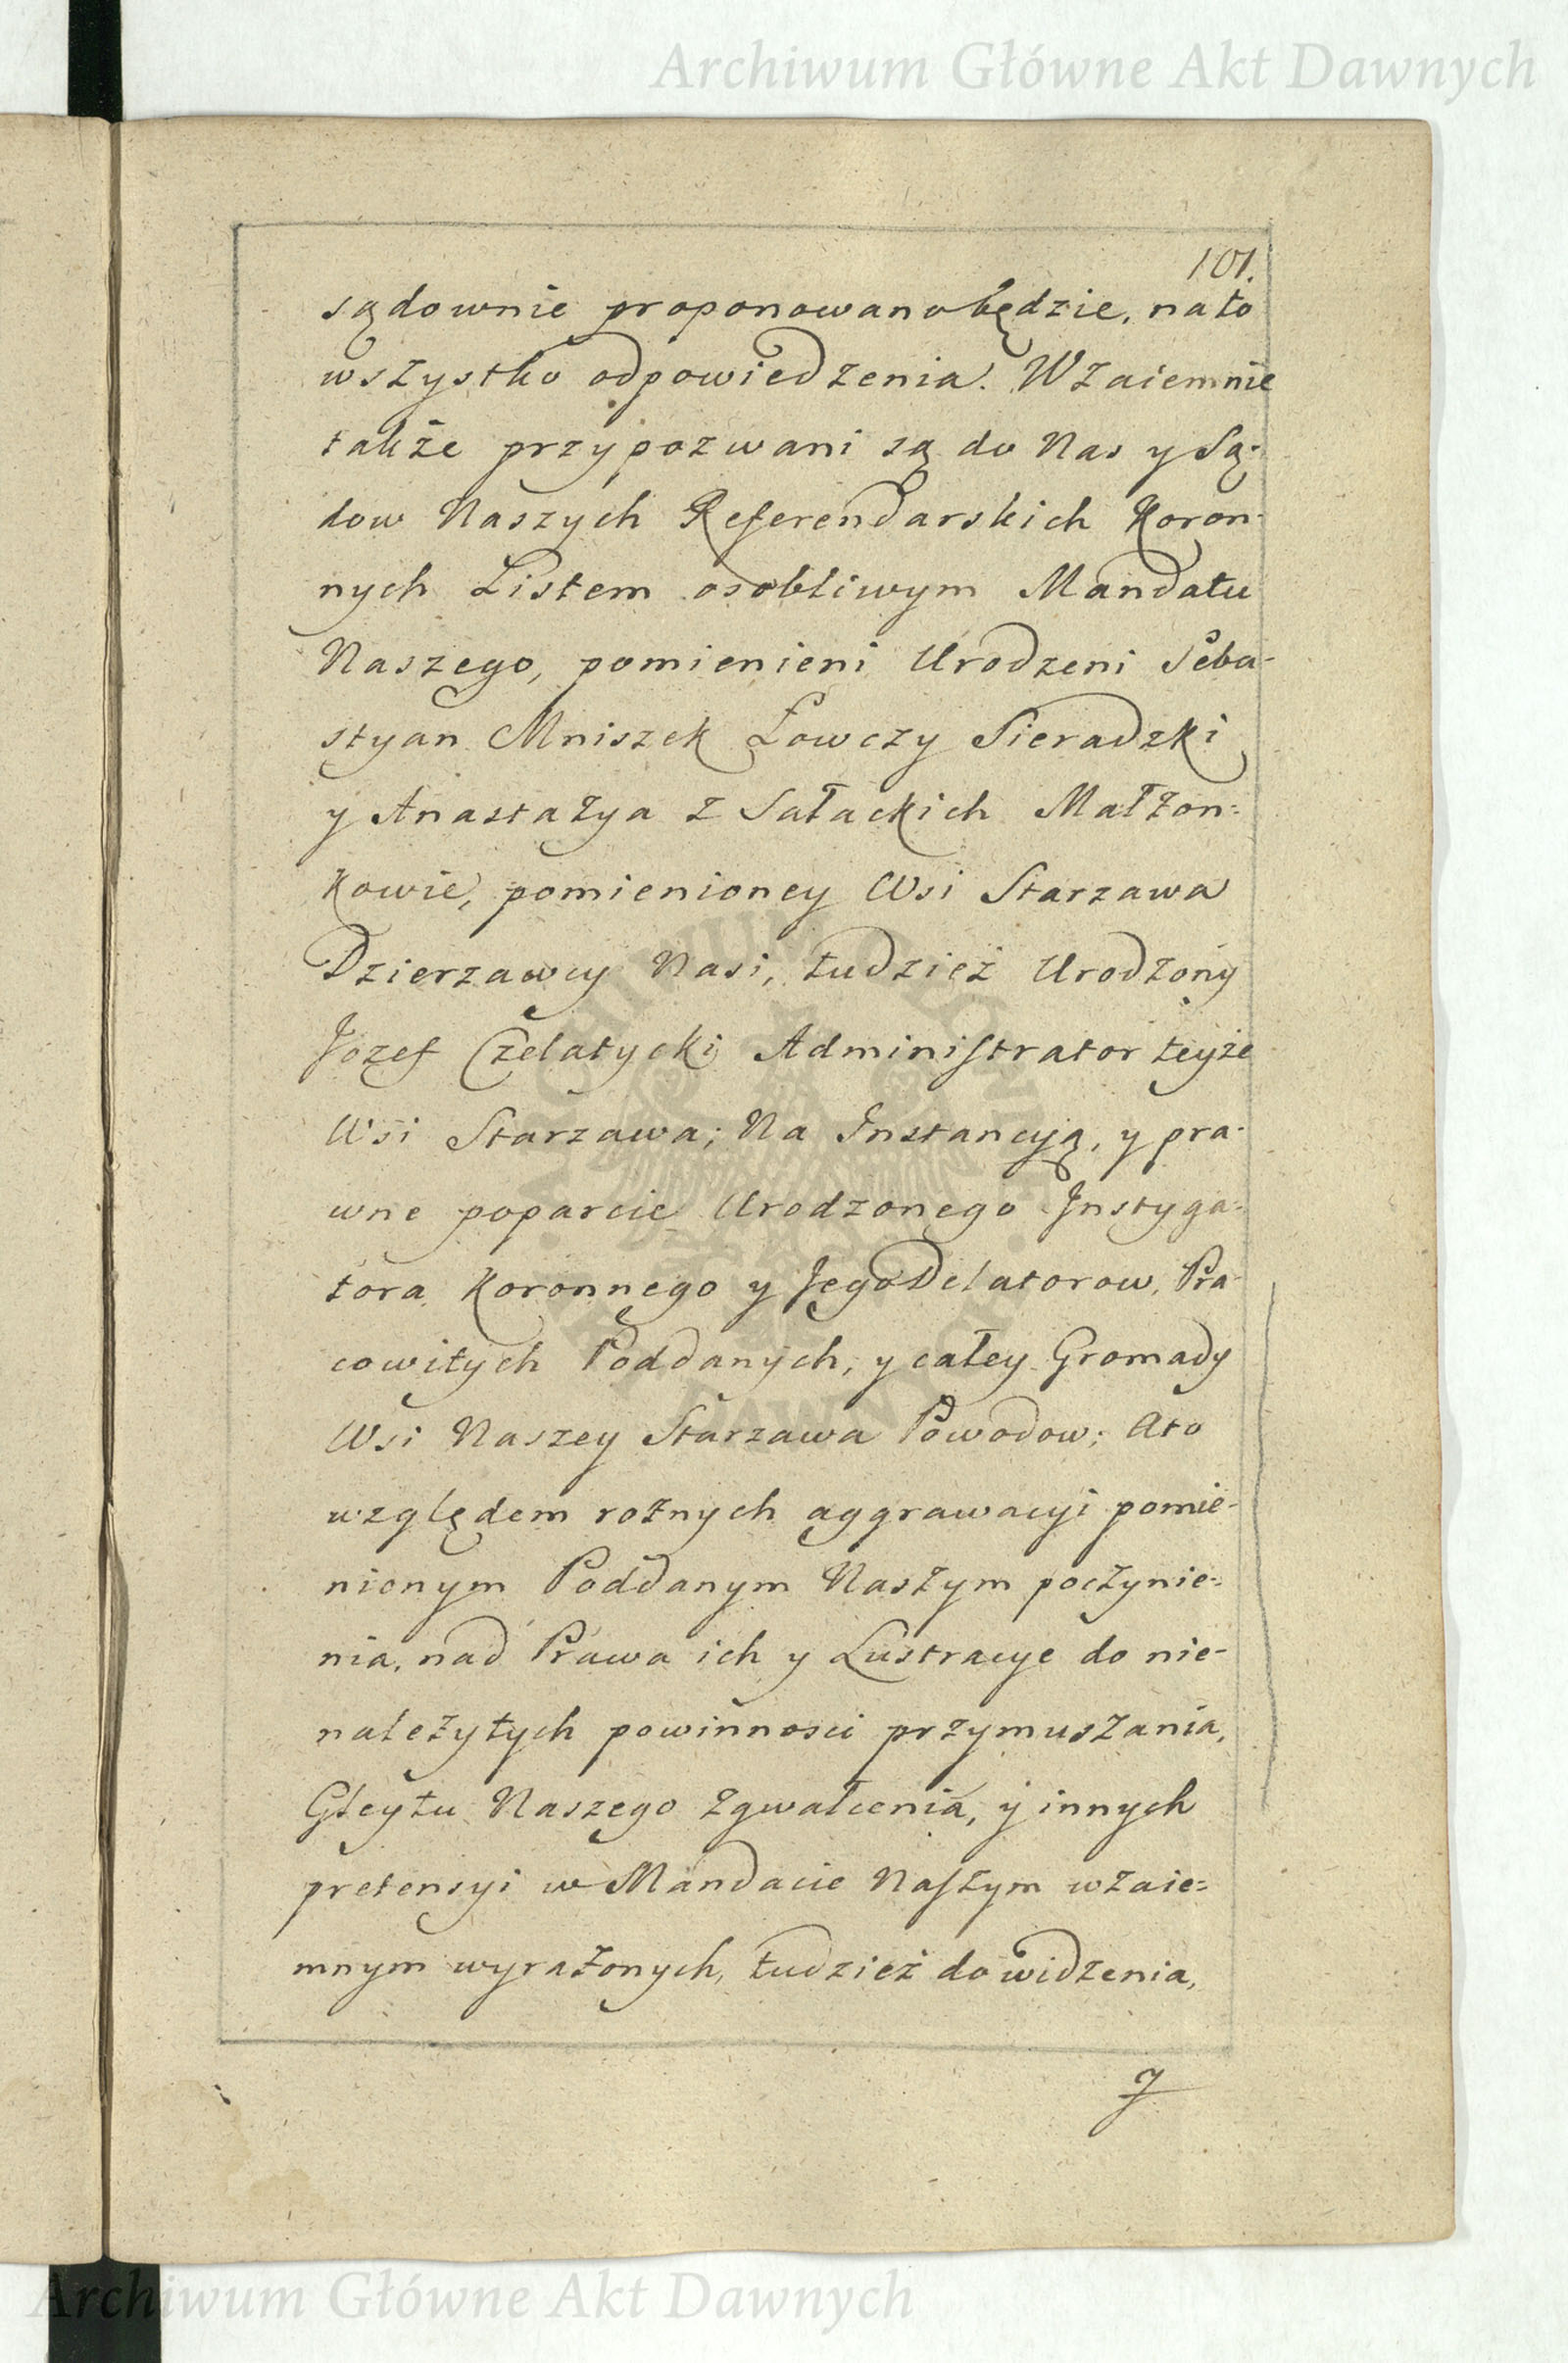 Archiwum Główne Akt Dawnych
101.
sądownie proponowano będzie, na to
wszystko odpowiedzenia. Wzaiemnie
także przypozwani są do Nas y Są-
dow Naszych Referendarskich Koron-
nych Listem osobliwym Mandatu
Naszego, pomienieni Urodzeni Seba-
styan Mniszek Łowczy Sieradzki
y Anastazya z Sałackich Małżon=
kowie, pomienioney Wsi Starzawa
Dzierzawcy Nasi, tudzież Urodzony
Jozef Czelatycki Administrator teyże
Wsi Starzawa; Na Instancyją, y pra-
wne poparcie Urodzonego Instyga-
tora Koronnego y Jego Delatorow, Pra-
cowitych Poddanych, y całey Gromady
Wsi Naszey Starzawa Powodow; Ato
względem rożnych aggrawacyi pomie-
nionym Poddanym Naszym poczynie=
nia, nad Prawa ich y Lustracye do nie-
należytych powinnosci przymuszania,
Gleytu Naszego zgwałcenia, y innych
pretensyi w Mandacie Naszym wzaie=
mnym wyrażonych, tudzież do widzenia,
y
Archiwum Główne Akt Dawnych